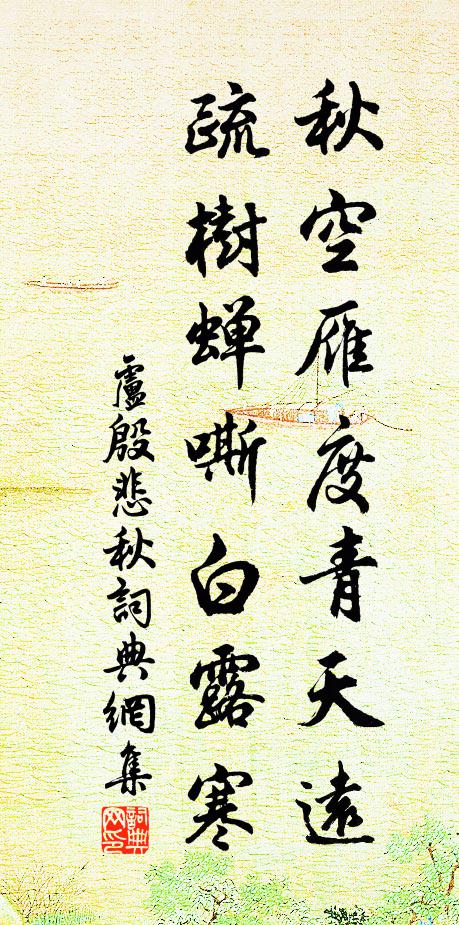 秋空雁度青天遠
疏樹蝉嘶白露寒
盧殷悲秋詞典網集
詞典網印